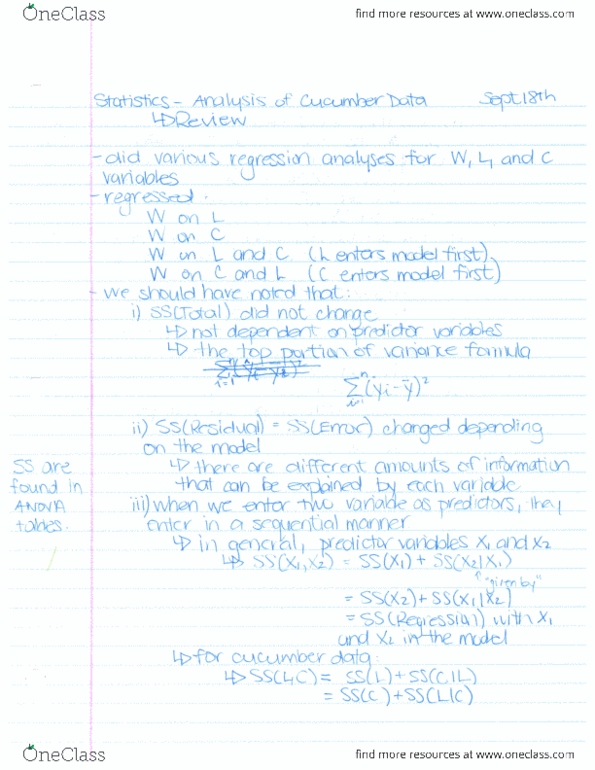 OneClass
find more resources at www.oneclass.com
Statistics - Analysis of Cucumber Data Sept 18th
↳ Review
- did various regression analyses for W, L, and C
variables
- regressed.
W on L
W on C
W on L and C (L enters model first)
W on C and L (C enters model first)
- we should have noted that:
i) SS(Total) did not change
↳ not dependent on predictor variables
↳ the top portion of variance formula
n
Σ (yi - ȳ)²
i=1
ii) SS(Residual) = SS(Error) changed depending
on the model
↳ there are different amounts of information
that can be explained by each variable
SS are
found in
ANOVA
tables.
iii) when we enter two variable as predictors, they
enter in a sequential manner
↳ in general, predictor variables X1 and X2
↳ SS(X1, X2) = SS(X1) + SS(X2|X1)
↑ "given by"
= SS(X2) + SS(X1|X2)
= SS(Regression) with X1
and X2 in the model
↳ for cucumber data:
↳ SS(L,C) = SS(L) + SS(C|L)
= SS(C) + SS(L|C)
OneClass
find more resources at www.oneclass.com